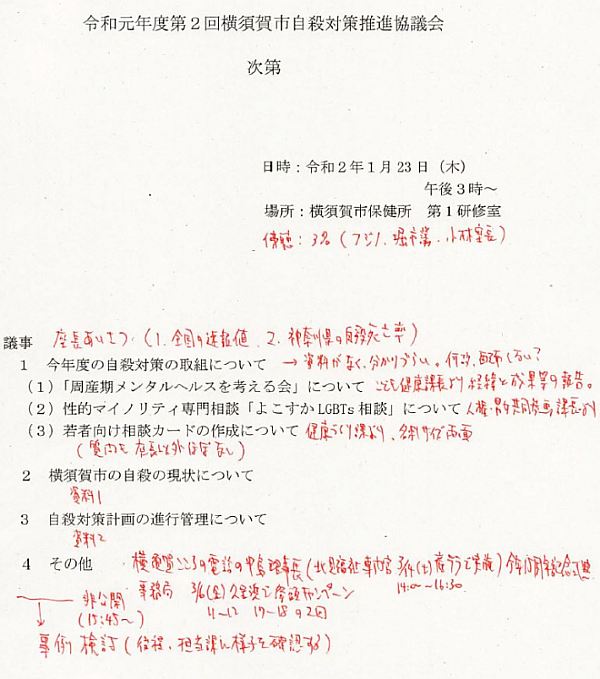 令和元年度第２回横須賀市自殺対策推進協議会
次第
日時：令和２年１月23日（木）
午後３時～
場所：横須賀市保健所　第１研修室
傍聴：3名（フジノ、堀市議、小林室長）
議事　座長あいさつ（1.全国の速報値、2.神奈川県の自殺死亡率）
１　今年度の自殺対策の取組について　→資料がなく、分かりづらい。何故、配布しない？
（１）「周産期メンタルヘルスを考える会」について　こども健康課長より経緯と成果等の報告。
（２）性的マイノリティ専門相談「よこすかLGBTs相談」について　人権・男女共同参画課長より
（３）若者向け相談カードの作成について　健康づくり課より、名刺サイズ両面
（質問も座長以外ほぼなし）
２　横須賀市の自殺の現状について
資料1
３　自殺対策計画の進行管理について
資料2
４　その他　横須賀こころの電話の中島理事長（北見福祉専門官 3/14(土)産プラで実施）周年記念式典
14:00～16:30
事務局　3/6(金)久里浜で街頭キャンペーン
11～12　17～18の2回
非公開
(15:45～)
事例検討（後程、担当課に様子を確認する）